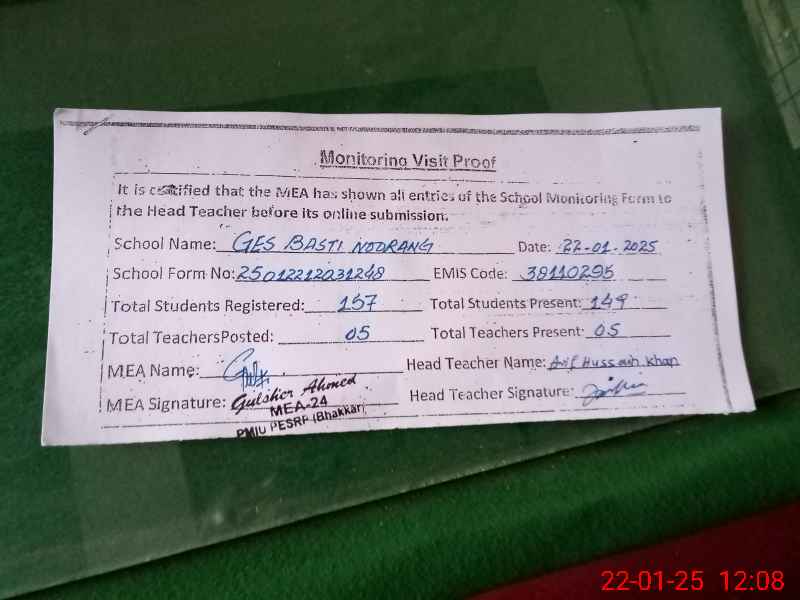 Monitoring Visit Proof
It is certified that the MEA has shown all entries of the School Monitoring Form to
the Head Teacher before its online submission.
School Name: GES BASTI NOORANG Date: 22-01-2025
School Form No: 25012212031248 EMIS Code: 38110295
Total Students Registered: 157 Total Students Present: 149
Total TeachersPosted: 05 Total Teachers Present: 05
MEA Name: Head Teacher Name: Arif Hussain Khan
MEA Signature: Gulsher Ahmed Head Teacher Signature:
MEA-24
PMIU PESRP (Bhakkar)
22-01-25 12:08